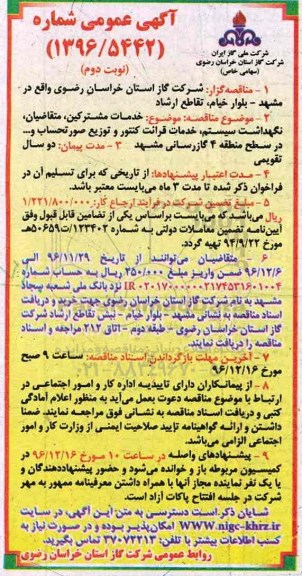 شرکت ملی گاز ایران
شرکت گاز استان خراسان رضوی
(سهامی خاص)
آگهی عمومی شماره
(۱۳۹۶/۵۴۴۲)
(نوبت دوم)
۱ - مناقصه‌گزار: شرکت گاز استان خراسان رضوی واقع در
مشهد - بلوار خیام، تقاطع ارشاد
۲ - موضوع مناقصه: موضوع: خدمات مشترکین، متقاضیان،
نگهداشت سیستم، خدمات قرائت کنتور و توزیع صورتحساب و...
در سطح منطقه ۴ گازرسانی مشهد ۳ - مدت پیمان: دو سال
تقویمی
۴ - مدت اعتبار پیشنهادها: از تاریخی که برای تسلیم آن در
فراخوان ذکر شده تا مدت ۳ ماه می‌بایست معتبر باشد.
۵ - مبلغ تضمین شرکت در فرآیند ارجاع کار: ۱/۲۲۱/۸۰۰/۰۰۰
ریال می‌باشد که می‌بایست براساس یکی از تضامین قابل قبول وفق
آیین‌نامه تضمین معاملات دولتی به شماره ۱۲۳۴۰۲/ت۵۰۶۵۹هـ
مورخ ۹۴/۹/۲۲ تهیه گردد.
۶ - متقاضیان می‌توانند از تاریخ ۹۶/۱۱/۲۹ الی
۹۶/۱۲/۶ ضمن واریز مبلغ ۲۵۰/۰۰۰ ریال به حساب شماره
نزد بانک ملی شعبه سجاد
مشهد به نام شرکت گاز استان خراسان رضوی جهت خرید و دریافت
اسناد مناقصه به نشانی مشهد - بلوار خیام - نبش تقاطع ارشاد شرکت
گاز استان خراسان رضوی - طبقه دوم - اتاق ۲۱۲ مراجعه و اسناد
مناقصه را دریافت نمایند.
۷ - آخرین مهلت بازگرداندن اسناد مناقصه: ساعت ۹ صبح
مورخ ۹۶/۱۲/۱۶
۸ - از پیمانکاران دارای تاییدیه اداره کار و امور اجتماعی در
ارتباط با موضوع مناقصه دعوت بعمل می‌آید به منظور اعلام آمادگی
کتبی و دریافت اسناد مناقصه به نشانی فوق مراجعه نمایند. ضمنا
داشتن و ارائه گواهینامه تایید صلاحیت ایمنی از وزارت کار و امور
اجتماعی الزامی می‌باشد.
۹ - پیشنهادهای واصله در ساعت ۱۰ مورخ ۹۶/۱۲/۱۶ در
کمیسیون مربوطه باز و خوانده می‌شود و حضور پیشنهاددهندگان و
یا یک نفر نماینده مجاز آنها با همراه داشتن معرفینامه ممهور به مهر
شرکت در جلسه افتتاح پاکات آزاد است.
شایان ذکر است دسترسی به متن این آگهی، در سایت
WWW.nigc-khrz.ir امکان‌پذیر بوده و در صورت نیاز به
کسب اطلاعات بیشتر با تلفن: ۳۷۰۷۲۲۱۳ تماس بگیرید.
روابط عمومی شرکت گاز استان خراسان رضوی